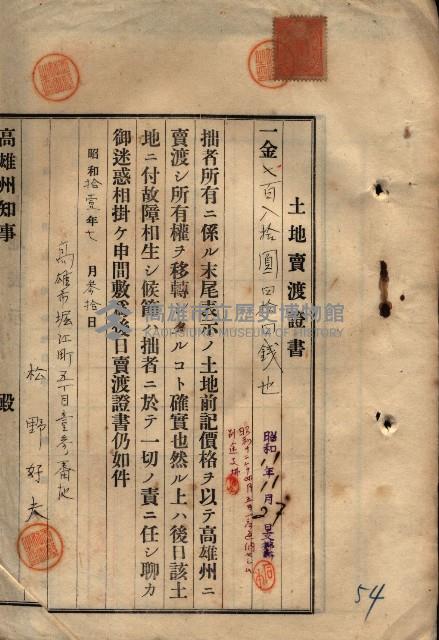 土地賣渡證書
一金七百八拾圓四拾錢也
拙者所有ニ係ル末尾表示ノ土地前記價格ヲ以テ高雄州ニ
賣渡シ所有權ヲ移轉シタルコト確實也然ル上ハ後日該土
地ニ付故障相生シ候節ハ拙者ニ於テ一切ノ責ニ任シ聊カ
御迷惑相掛ケ申間敷爲後日賣渡證書仍如件
昭和拾壹年七月參拾日
高雄市堀江町五丁目壹參番地
松野好夫
高雄州知事 殿
昭和11年11月27日
54
高雄市立歷史博物館
KAOHSIUNG MUSEUM OF HISTORY